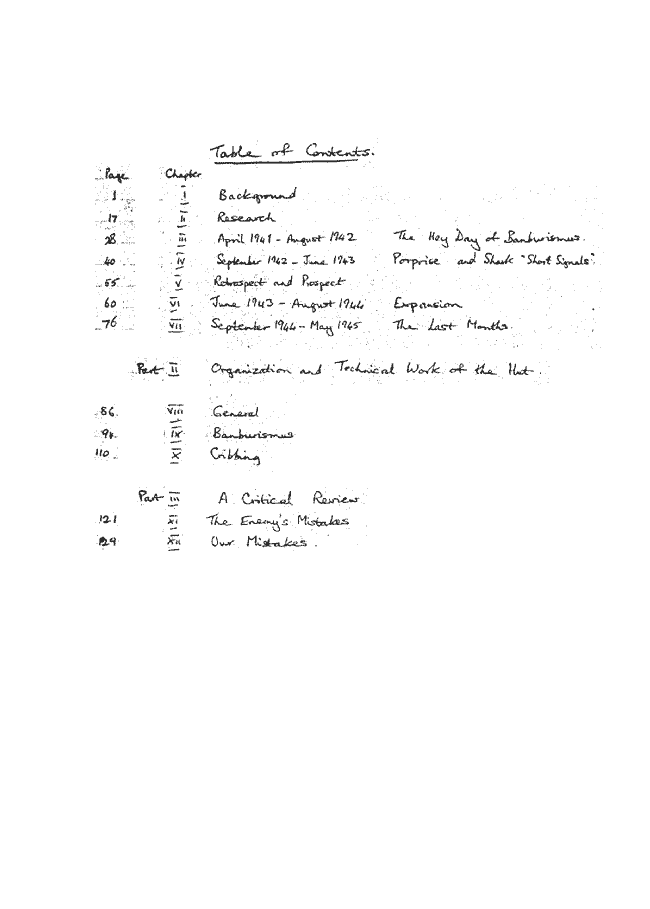 Table of Contents.
Page Chapter
1 I Background
17 II Research
28 III April 1941 - August 1942 The Hey Day of Banburismus.
40 IV September 1942 - June 1943 Porpoise and Shark "Short Signals".
55 V Retrospect and Prospect
60 VI June 1943 - August 1944 Expansion
76 VII September 1944 - May 1945 The Last Months.
Part II Organization and Technical Work of the Hut.
86 VIII General
94 IX Banburismus
110 X Cribbing
Part III A Critical Review
121 XI The Enemy's Mistakes
129 XII Our Mistakes.